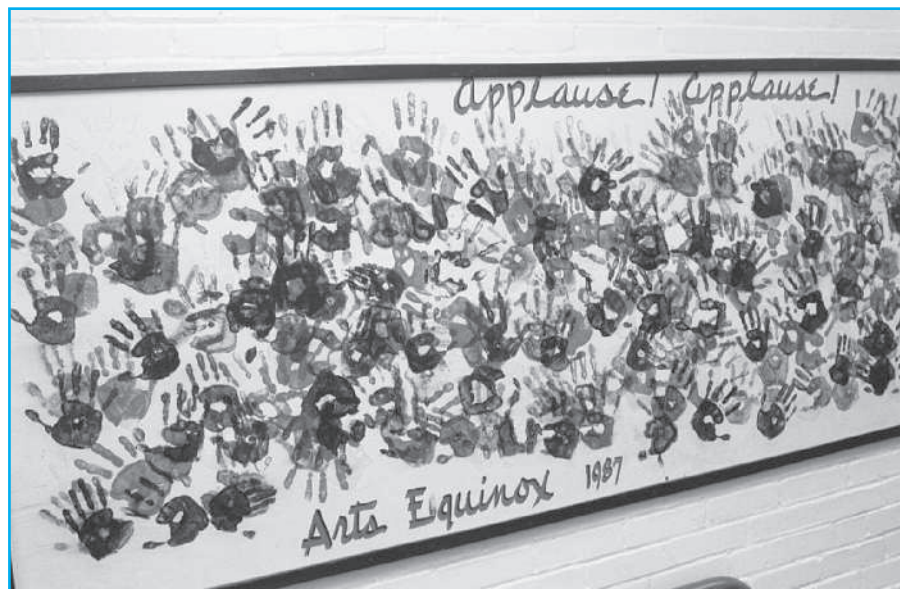 Applause! Applause!
Arts Equinox 1987